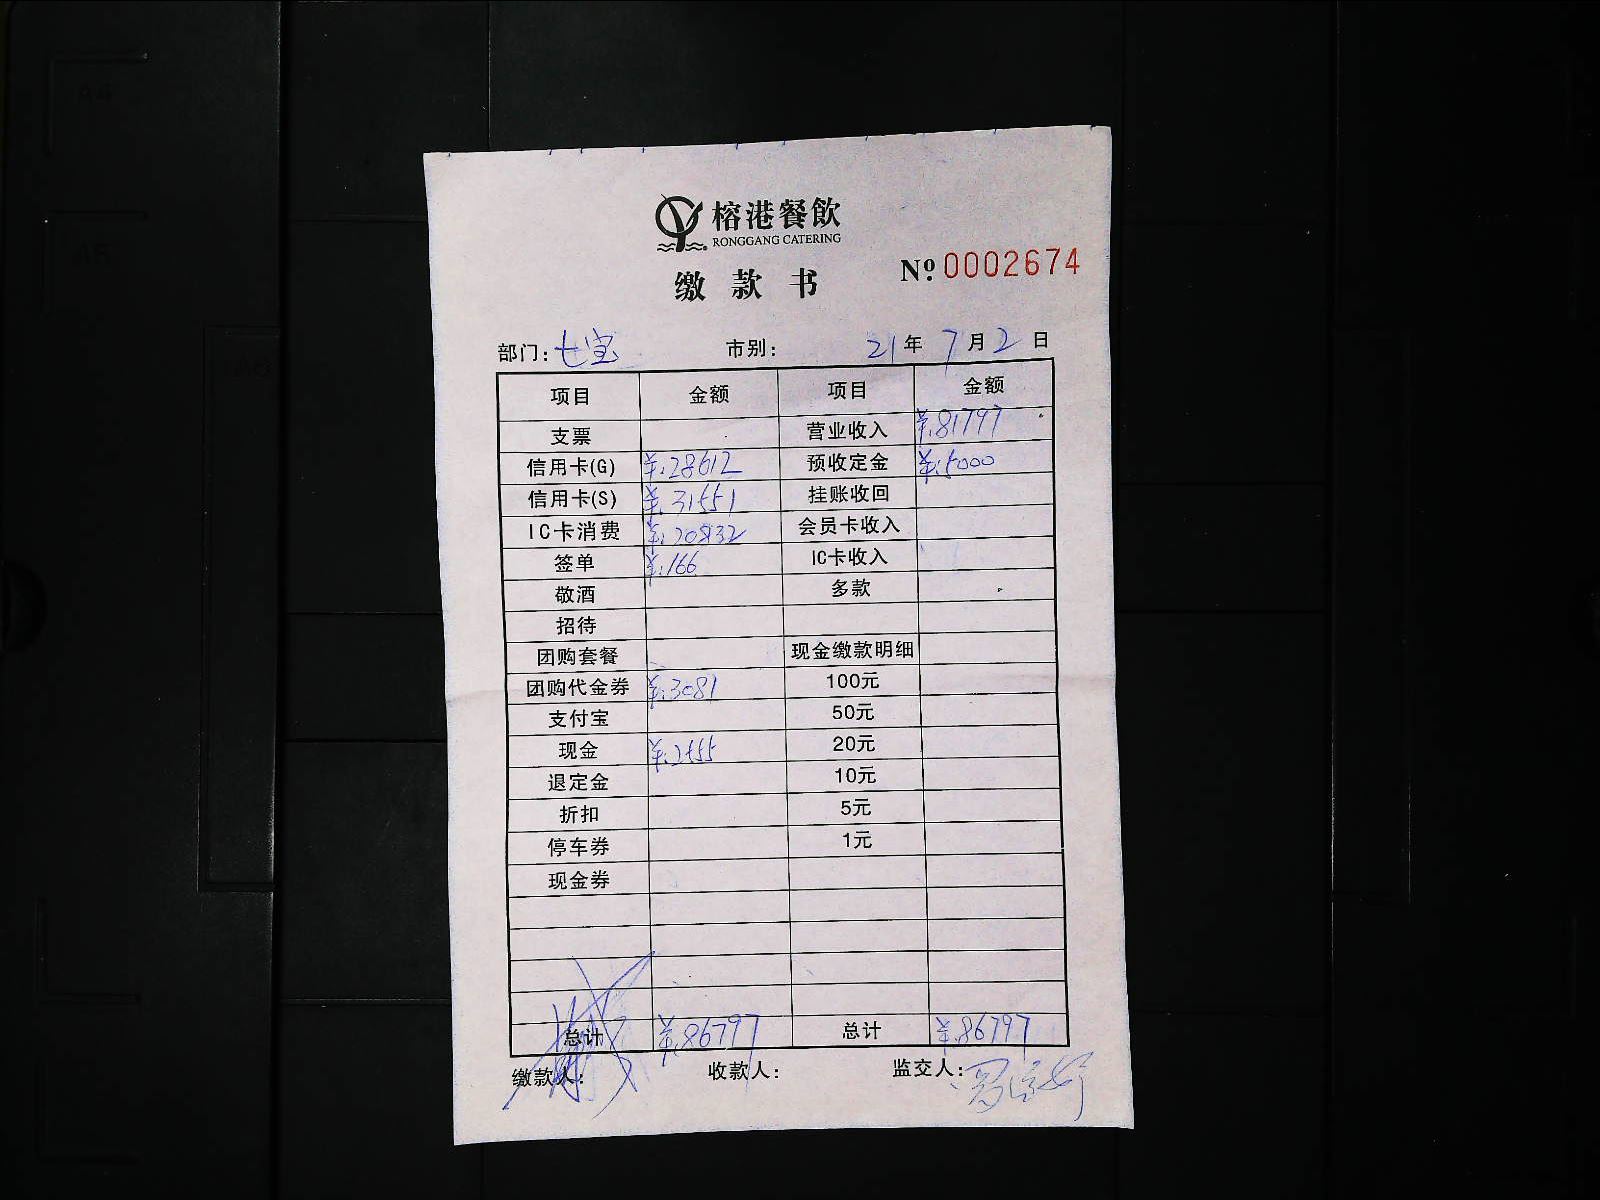 榕港餐飲
RONGGANG CATERING
缴款书 Nº 0002674
部门: 七宝 市别: 21年7月2日
项目 金额 项目 金额
支票 营业收入 ¥:81797
信用卡(G) ¥:28612 预收定金 ¥:5000
信用卡(S) ¥:31551 挂账收回
IC卡消费 ¥:20832 会员卡收入
签单 ¥:166 IC卡收入
敬酒 多款
招待
团购套餐 现金缴款明细
团购代金券 ¥:3081 100元
支付宝 50元
现金 ¥:2555 20元
退定金 10元
折扣 5元
停车券 1元
现金券
总计 ¥:86797 总计 ¥:86797
缴款人: 收款人: 监交人: